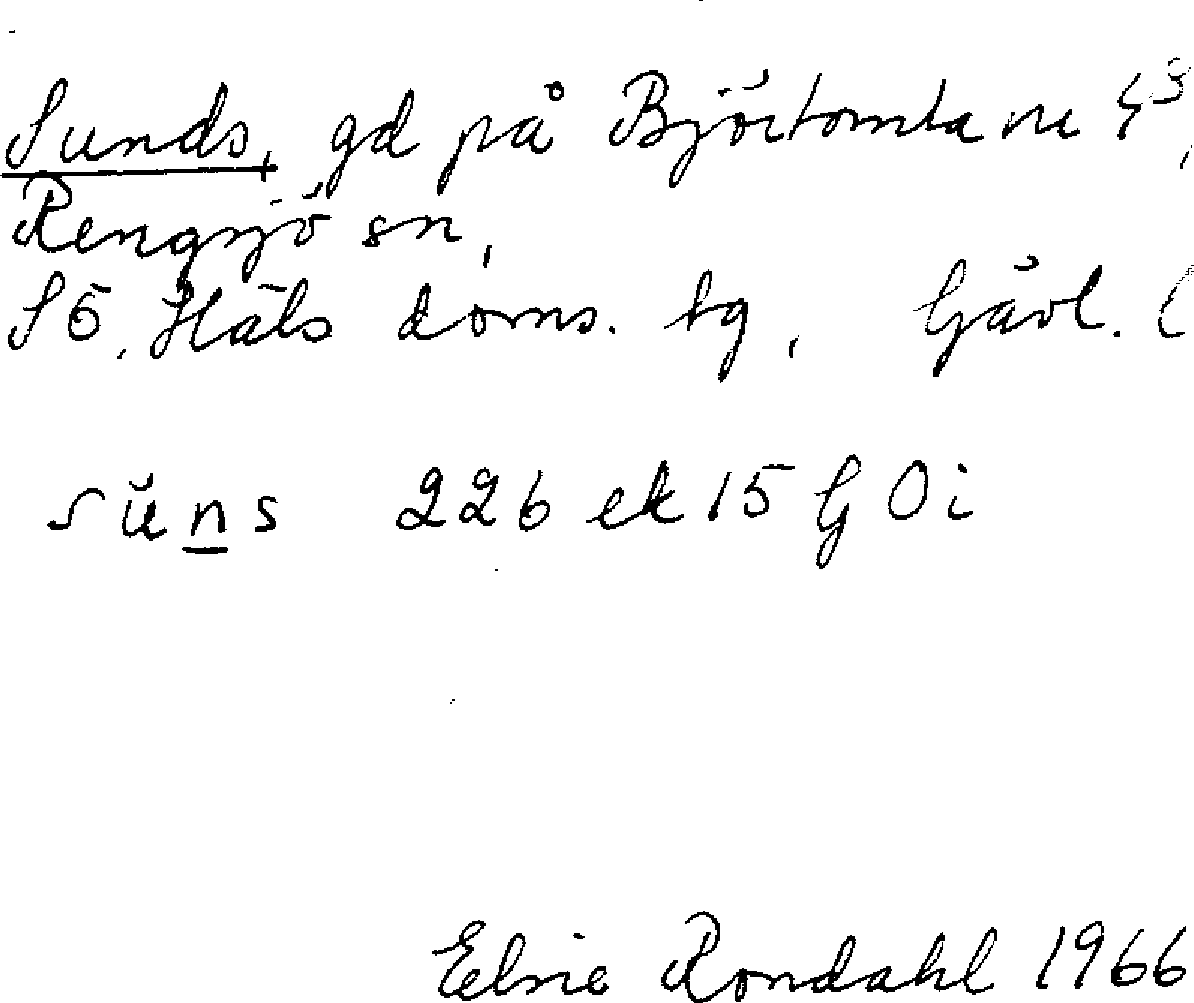 Sunds, gd på Björtomta nr 4³,
Rengsjö sn,
SÖ. Häls doms. tg, Gävl. l
sŭns 226 ek 15 G Oi
Elsie Rondahl 1966